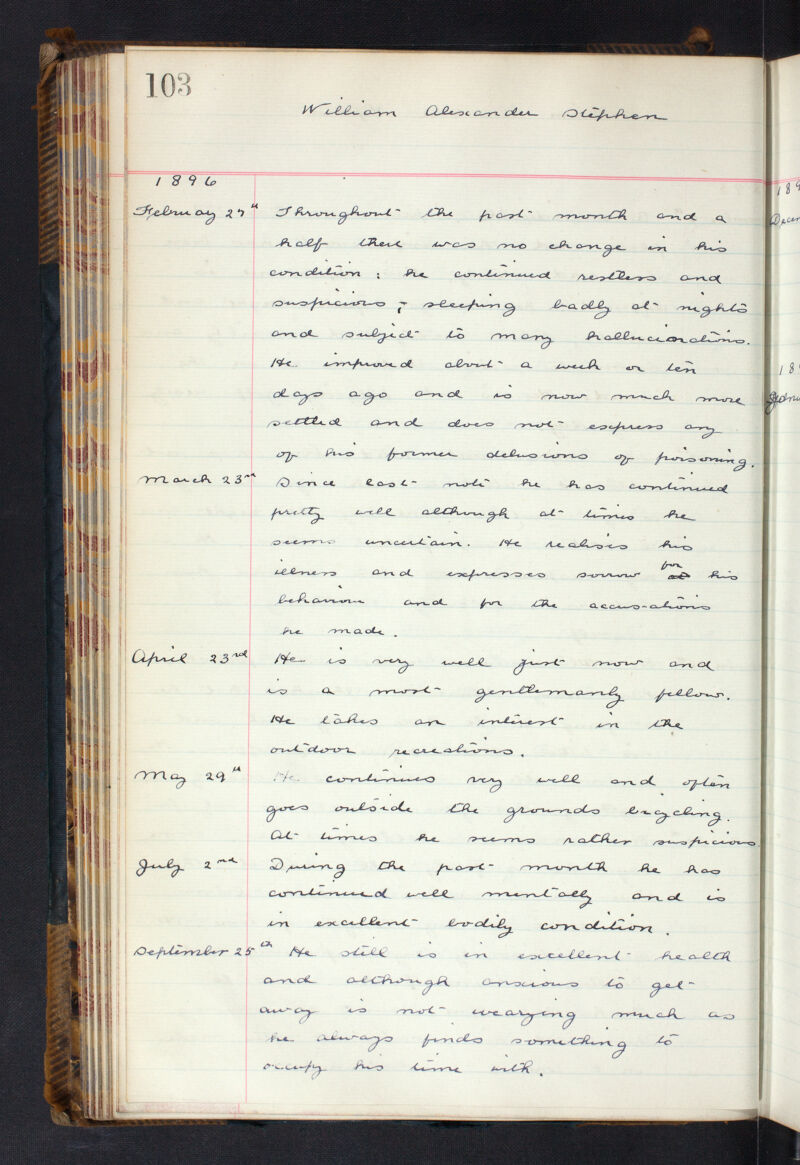 103
William Alexander Stephen
1896
February 27th Throughout the past month and a
half there was no change in his
condition : he continued restless and
suspicious ; sleeping badly at nights
and subject to many hallucinations.
He improved about a week or ten
days ago and is now much more
settled and does not express any
of his former delusions of poisoning.
March 23rd Since last note he has continued
pretty well although at times he
seems uncertain. He realises his
illness and expresses sorrow for his
behaviour and for the accusations
he made.
April 23rd He is very well just now and
is a most gentlemanly fellow.
He takes an interest in the
outdoor recreations.
May 29th He continues very well and often
goes outside the grounds bicycling.
At times he seems rather suspicious
July 2nd During the past month he has
continued well mentally and is
in excellent bodily condition.
September 25th He still is in excellent health
and although anxious to get
away is not wearying much as
he always finds something to
occupy his time with.
189
Decem
18